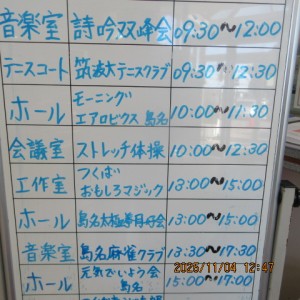 音楽室 詩吟双峰会 09:30〜12:00
テニスコート 筑波大テニスクラブ 09:30〜12:30
ホール モーニング エアロビクス 島名 10:00〜11:30
会議室 ストレッチ体操 10:00〜12:30
工作室 つくば おもしろマジック 13:00〜15:00
ホール 島名太極拳同好会 13:00〜15:00
音楽室 島名麻雀クラブ 13:30〜17:30
ホール 元気でいよう会 島名 15:00〜17:00
2025/11/04 12:47